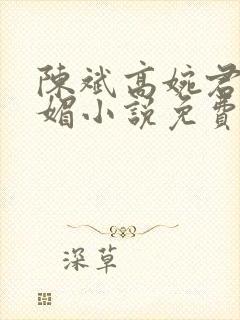 陳斌高婉君
媚小說免費
深草